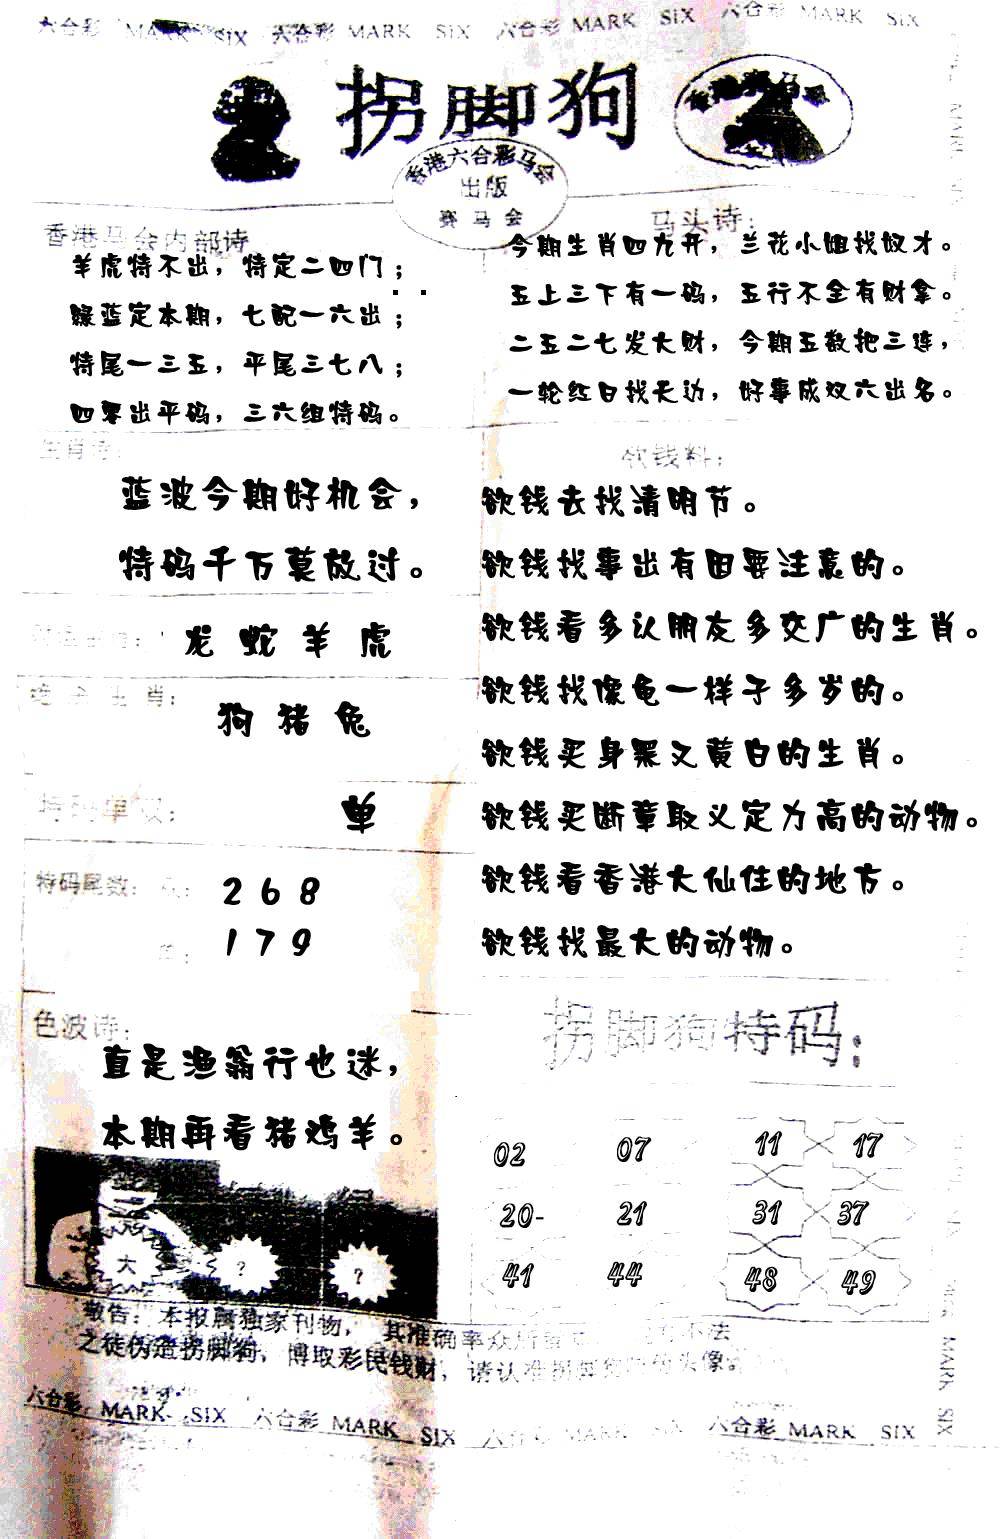 六合彩 MARK SIX 六合彩 MARK SIX 六合彩 MARK SIX 六合彩 MARK SIX
拐脚狗
香港六合彩马会
出版
赛马会
香港马会内部诗
羊虎特不出，特定二四门；
绿蓝定本期，七配一六出；
特尾一三五，平尾三七八；
四零出平码，三六组特码。
马头诗：
今期生肖四九开，兰花小姐找奴才。
五上三下有一码，五行不全有财拿。
二五二七发大财，今期五数把三连，
一轮红日找天边，好事成双六出名。
生肖诗：
蓝波今期好机会，
特码千万莫放过。
龙 蛇 羊 虎
生肖：
狗 猪 兔
特码单双：
单
特码尾数：
2 6 8
1 7 9
色波诗：
直是渔翁行也迷，
本期再看猪鸡羊。
大 ? ?
欲钱料：
欲钱去找清明节。
欲钱找事出有因要注意的。
欲钱看多认朋友多交广的生肖。
欲钱找像龟一样子多岁的。
欲钱买身黑又黄白的生肖。
欲钱买断章取义定力高的动物。
欲钱看香港大仙住的地方。
欲钱找最大的动物。
拐脚狗特码：
02 07 11 17
20- 21 31 37
41 44 48 49
敬告：本报属独家刊物，其准确率众所 不法
之徒伪造拐脚狗，博取彩民钱财，请认准拐脚 头像。
六合彩 MARK SIX 六合彩 MARK SIX 六合彩 MARK SIX 六合彩 MARK SIX
MARK SIX